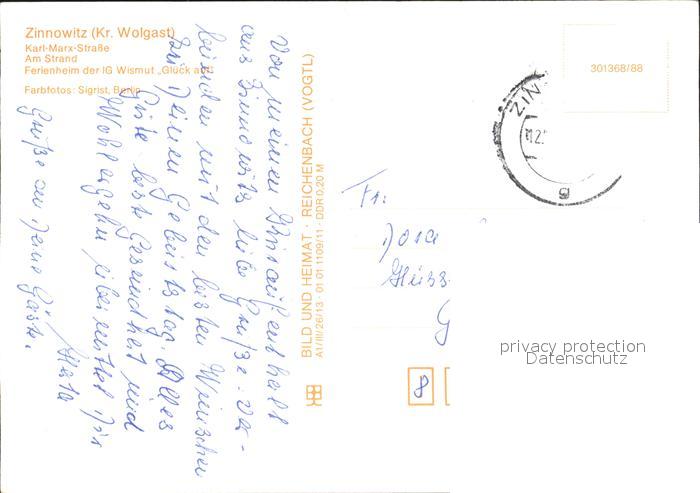 Zinnowitz (Kr. Wolgast)
Karl-Marx-Straße
Am Strand
Ferienheim der IG Wismut „Glück auf“
Farbfotos: Sigrist, Berlin
Von meinem
aus Zinnowitz liebe Grüße. Ver-
bunden mit den besten Wünschen
zu Deinem Geburtstag. Alles
Gute beste Gesundheit und
Wohlergehn übermittelt Dir
Herta
Grüße an Deine Gäste.
BILD UND HEIMAT · REICHENBACH (VOGTL)
A1/III/26/13 · 01 01 1109/11 · DDR 0,20 M
301368/88
ZIN
Fr.
8
privacy protection
Datenschutz